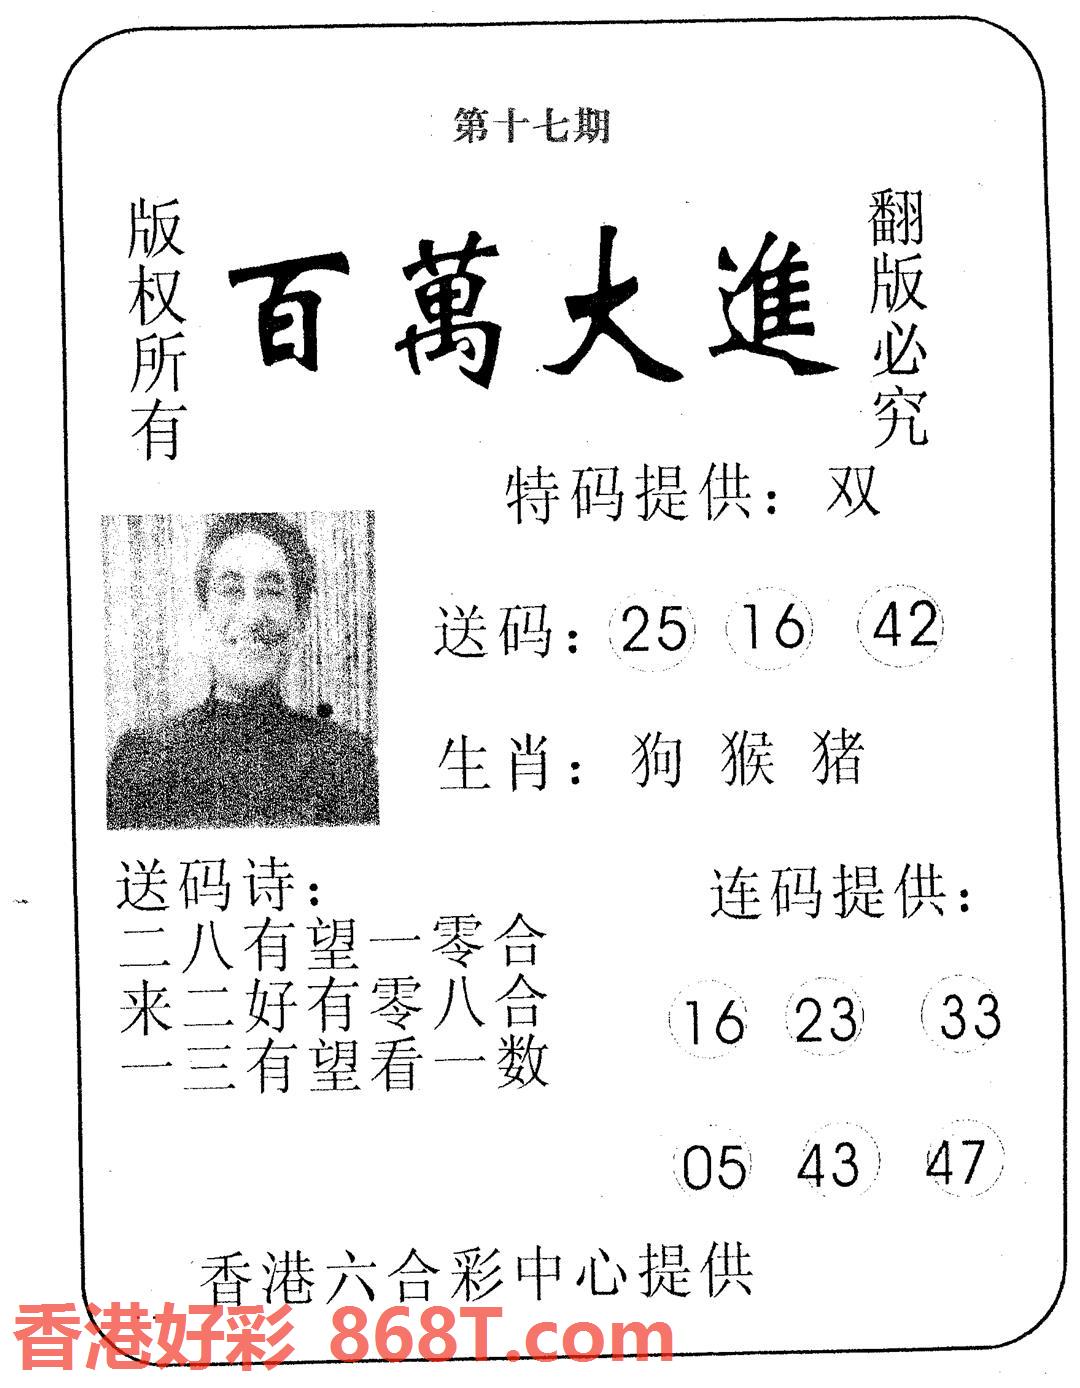 第十七期
版权所有
百萬大進
翻版必究
特码提供：双
送码：25 16 42
生肖：狗 猴 猪
送码诗：
二八有望一零合
来二好有零八合
一三有望看一数
连码提供：
16 23 33
05 43 47
香港六合彩中心提供
香港好彩 868T.com